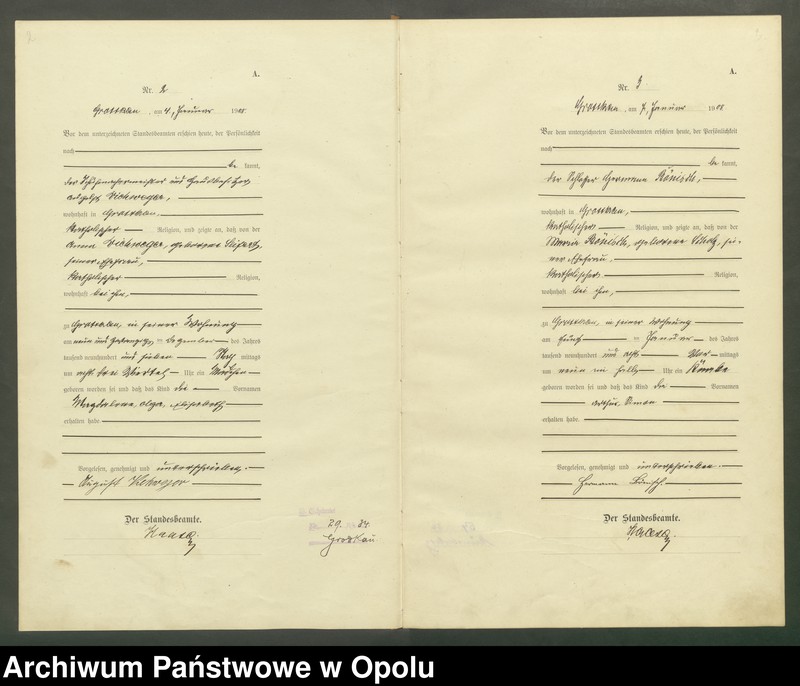 A.
Nr. 2
Grottkau, am 4. Januar 1908
Vor dem unterzeichneten Standesbeamten erschien heute, der Persönlichkeit
nach
be kannt,
der Schuhmachermeister und Hausbesitzer
wohnhaft in Grottkau,
katholischer Religion, und zeigte an, daß von der
Anna geborene
seiner Ehefrau,
katholischer Religion,
wohnhaft bei ihm,
zu Grottkau, in seiner Wohnung
am neun und zwanzigsten Dezember des Jahres
tausend neunhundert und sieben Nach mittags
um acht drei Viertel Uhr ein Mädchen
geboren worden sei und daß das Kind die Vornamen
Magdalena, Olga, Elisabeth
erhalten habe
Vorgelesen, genehmigt und unterschrieben.
August
Der Standesbeamte.
29. 34
Grottkau
A.
Nr. 3
Grottkau, am 7. Januar 1908
Vor dem unterzeichneten Standesbeamten erschien heute, der Persönlichkeit
nach
be kannt,
der Schlosser Hermann
wohnhaft in Grottkau,
katholischer Religion, und zeigte an, daß von der
Maria geborene Scholz, sei-
ner Ehefrau,
katholischer Religion,
wohnhaft bei ihm,
zu Grottkau, in seiner Wohnung
am fünften Januar des Jahres
tausend neunhundert und acht Vor mittags
um neun ein halb Uhr ein Knabe
geboren worden sei und daß das Kind die Vornamen
Arthur
erhalten habe
Vorgelesen, genehmigt und unterschrieben.
Hermann
Der Standesbeamte.
Archiwum Państwowe w Opolu